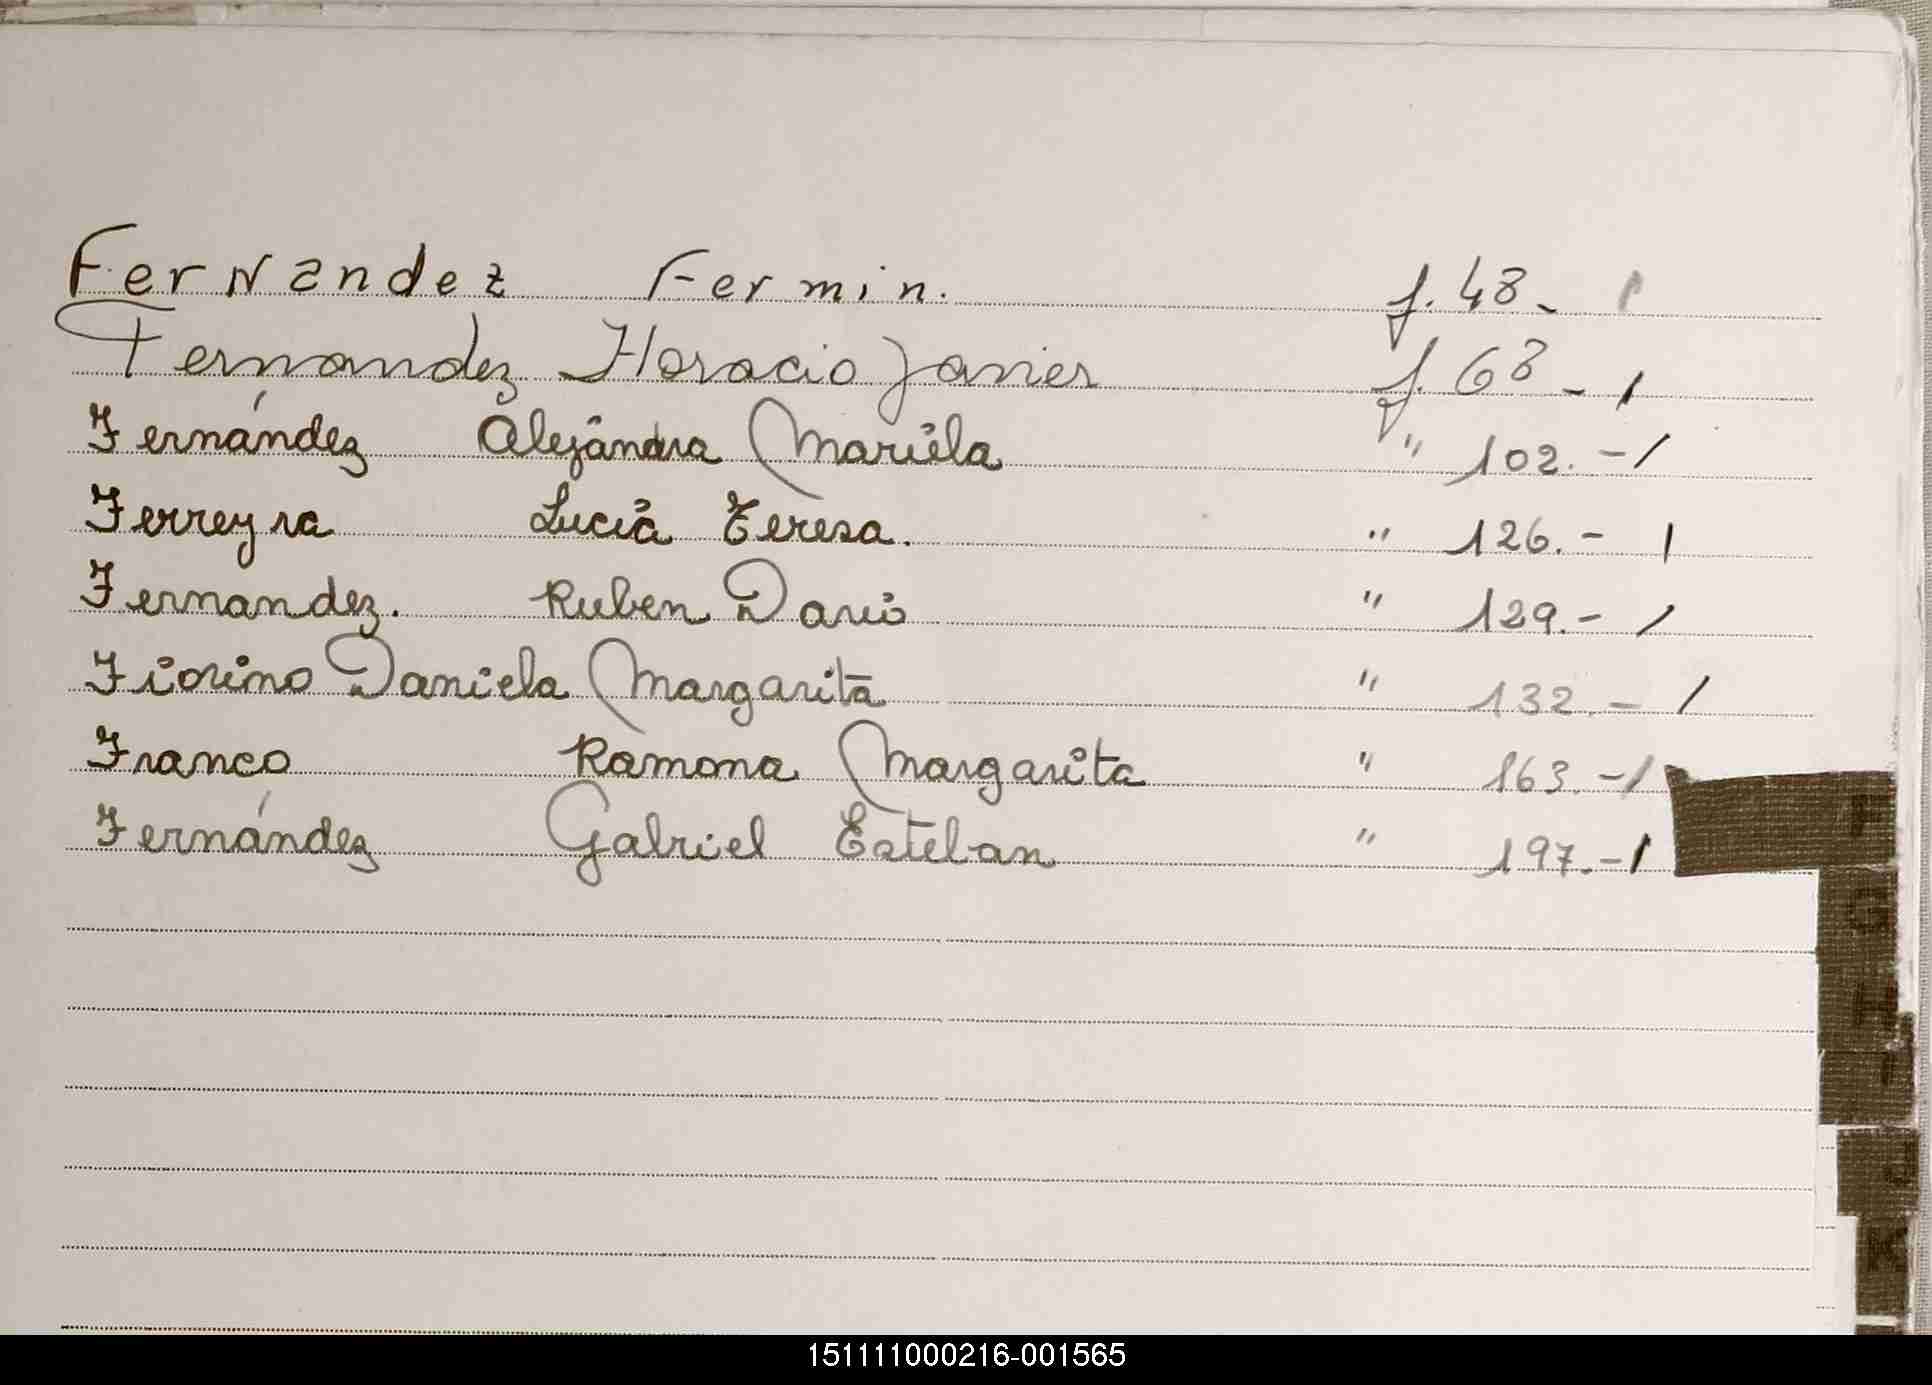 Fernandez Fermin. f. 48- 1
Fernandez Horacio Javier f. 68 - 1
Fernández Alejandra Mariela " 102. - 1
Ferreyra Lucia Teresa. " 126. - 1
Fernandez. Ruben Dario " 129. - 1
Fiorino Daniela Margarita " 132. - 1
Franco Ramona Margarita " 163. - 1
Fernández Gabriel Esteban " 197. - 1
F
G
H
I
J
K
151111000216-001565